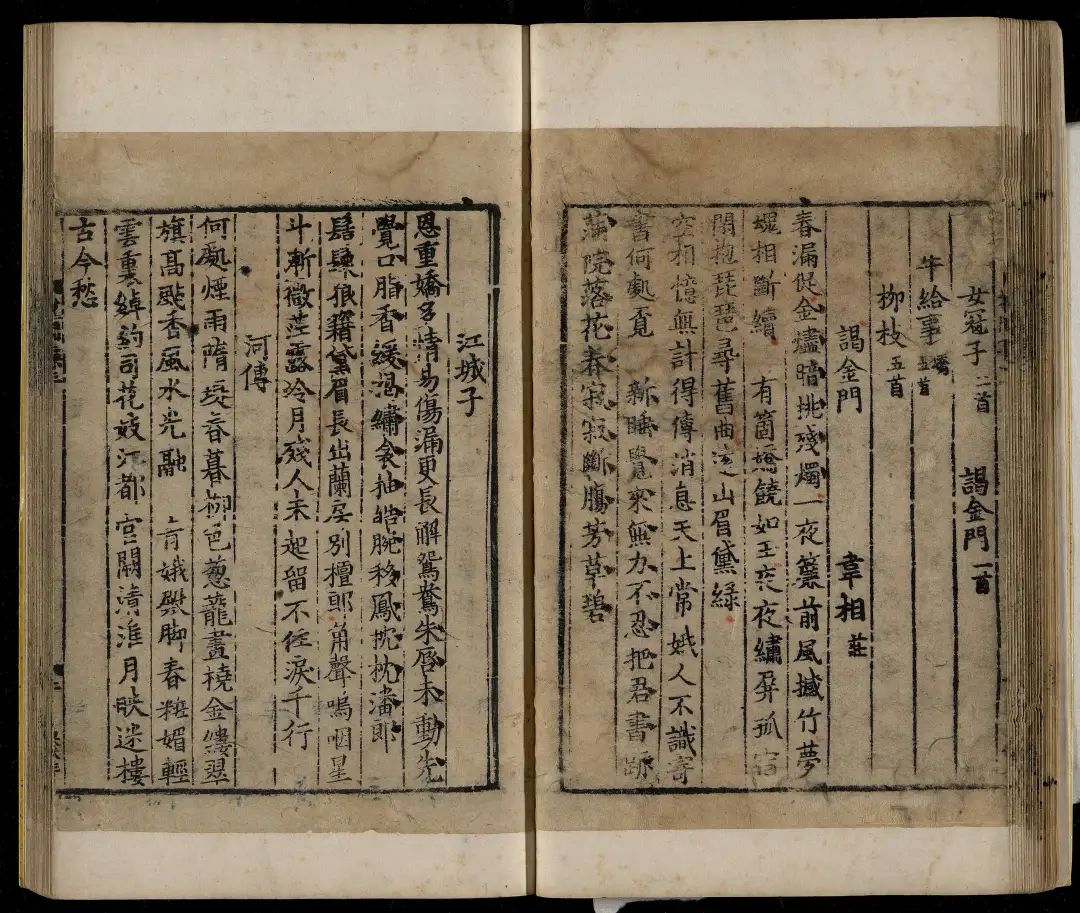 女冠子二首 謁金門一首
牛給事嶠五首
柳枝五首
謁金門 韋相莊
春漏促金燼暗挑殘燭一夜簾前風撼竹夢
魂相斷續 有箇嬌饒如玉夜夜繡屏孤宿
閑抱琵琶尋舊曲遠山眉黛綠
空相憶無計得傳消息天上常娥人不識寄
書何處覓 新睡覺來無力不忍把君書跡
滿院落花春寂寂斷膓芳草碧
江城子
恩重嬌多情易傷漏更長解鴛鴦朱唇未動先
覺口脂香緩揭繡衾抽皓腕移鳳枕枕潘郎
髻鬟狼籍黛眉長出蘭房別檀郎角聲嗚咽星
斗漸微茫露冷月殘人未起留不住淚千行
河傳
何處煙雨隋堤春暮柳色葱蘢畫橈金縷翠
旗高颭香風水光融 青娥殿脚春粧媚輕
雲裏綽約司花妓江都宮闕清淮月映迷樓
古今愁